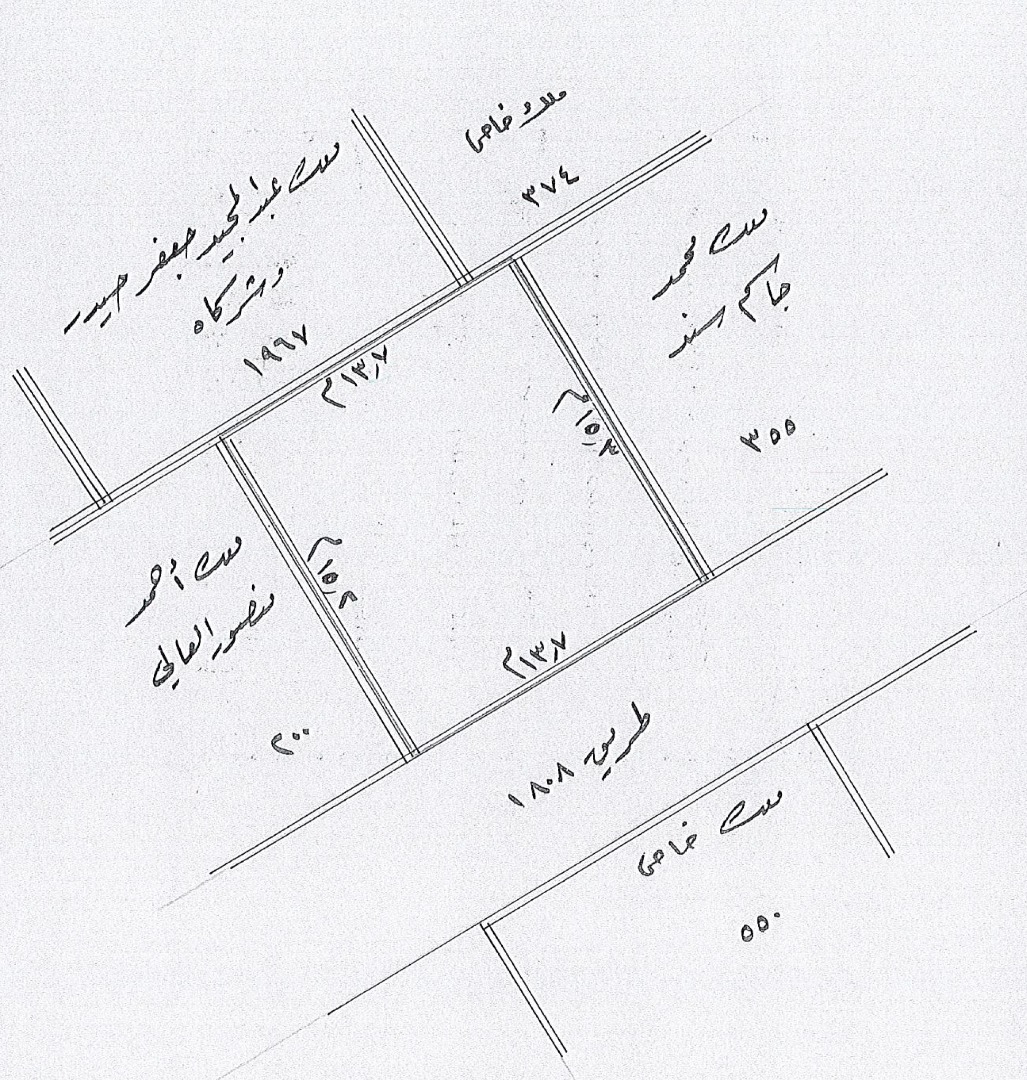 ملك خاص
٣٧٤
ملك عبدالمجيد جعفر حيدر
وشركاه
١٩٦٧
ملك محمد
جاسم سند
٣٥٥
١٣٫٧م
١٣٫٧م
ملك أحمد
منصور العالي
٢٠٠
طريق ١٨٠٨
ملك خاص
٥٥٠